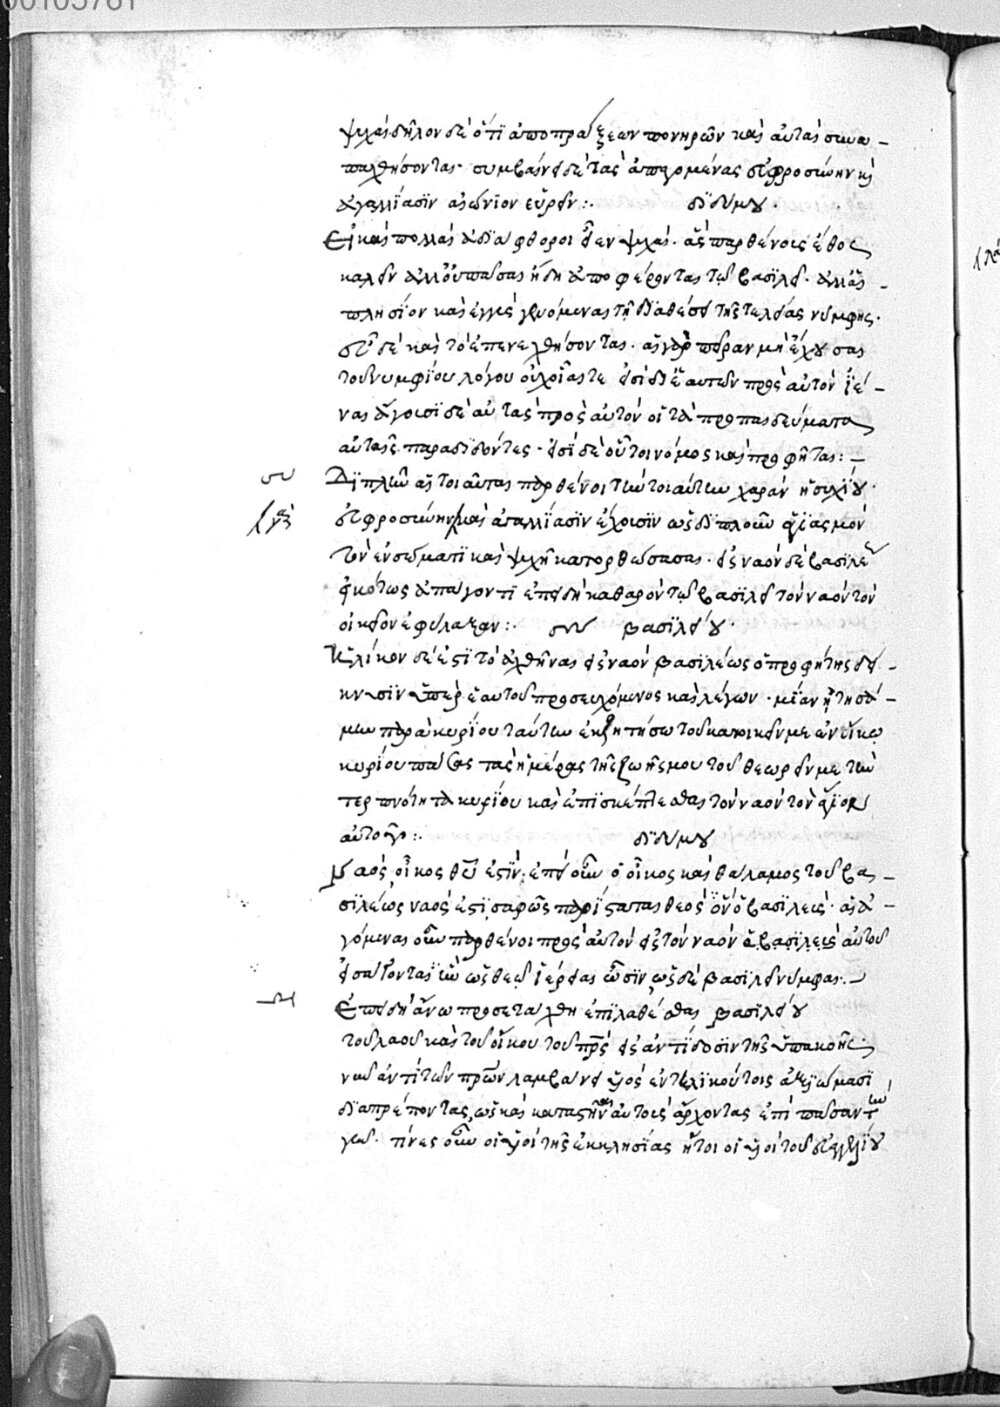 00105761
ψυχάς δῆλον δὲ ὅτι ἀπὸ πράξεων πονηρῶν καὶ αὐτὰς συνα–
παχθήσονται· συμβαίνει δὲ τὰς ἀπαγομένας εὐφροσύνην κ(αὶ)
ἀγαλλίασιν αἰώνιον εὑρεῖν:· διδύμου·
Εἰ καὶ πολλαὶ ἀδιάφθοροι εἶεν ψυχαὶ· αἷς παρθένοις ἔθος
καλεῖν ἀλλ' οὐ πᾶσαι ἤδη ἀποφέρονται τῷ βασιλεῖ· ἀλλ' αἱ
πλησίον καὶ ἐγγὺς γενόμεναι τῇ διαθέσει τῆς τελείας νύμφης·
εὖ δὲ καὶ τὸ ἀπενεχθήσονται· αἱ γὰρ πεῖραν μὴ ἔχουσαι
τοῦ νυμφίου λόγου οὐχ οἷαί τε εἰσὶ δι' ἑαυτῶν πρὸς αὐτὸν ἰέ–
ναι ἄγουσι δὲ αὐτὰς πρὸς αὐτὸν οἱ τὰ προπαιδεύματα
αὐταῖς παραδιδόντες· εἰσὶ δὲ οὗτοι νόμος καὶ προφῆται:–
Διπλῆν αἱ τοιαῦται παρθένοι τὴν τοιαύτην χαρὰν
εὐφροσύνην καὶ ἀγαλλίασιν ἔχουσιν ὡς διπλοῦν
τὸν ἐν σώματι καὶ ψυχῆ κατορθώσασαι· εἰς ναὸν δὲ βασιλέως
εἰκότως ἀπάγονται ἐπειδὴ καθαρὸν τῷ βασιλεῖ τὸν ναὸν τὸν
οἰκεῖον ἐφύλαξαν:· βασιλείου·
Ἡλίκον δέ ἐστι τὸ ἀχθῆναι εἰς ναὸν βασιλέως ὁ προφήτης δεί–
κνυσιν ὑπὲρ ἑαυτοῦ προσευχόμενος καὶ λέγων· μίαν ᾐτησά–
μην παρὰ κυρίου ταύτην ἐκζητήσω τοῦ κατοικεῖν με ἐν οἴκῳ
κυρίου πάσας τὰς ἡμέρας τῆς ζωῆς μου τοῦ θεωρεῖν με τὴν
τερπνότητα κυρίου καὶ ἐπισκέπτεσθαι τὸν ναὸν τὸν ἅγιον
αὐτοῦ:· διδύμου
Ναὸς οἶκος θεοῦ ἐστίν· ἐπεὶ οὖν ὁ οἶκος καὶ θάλαμος τοῦ βα–
σιλέως ναός ἐστι σαφῶς παρίσταται θεὸς ὢν ὁ βασιλεύς· αἱ ἀ–
γόμεναι οὖν παρθένοι πρὸς αὐτὸν εἰς τὸν ναὸν βασιλεὺς αὐτοῦ
εἰσάγονται ἵν' ὡς θεῷ ἱέρειαι ὦσιν ὡς δὲ βασιλεῖ νύμφαι:–
Ἐπειδὴ ἄνω προσετάχθη ἐπιλαθέσθαι βασιλείου
τοῦ λαοῦ καὶ τοῦ οἴκου τοῦ πρς εἰς ἀντίδοσιν τῆς ὑπακοῆς
νῦν ἀντὶ τῶν πρων λαμβάνει υἱοὺς ἐν τηλικούτοις ἀξιώμασι
διαπρέποντας, ὡς καὶ καταστῆναι αὐτοὺς ἄρχοντας ἐπὶ πᾶσαν τὴν
γῆν· τίνες οὖν οἱ υἱοὶ τῆς ἐκκλησίας ἤτοι οἱ υἱοὶ τοῦ εὐαγγελίου